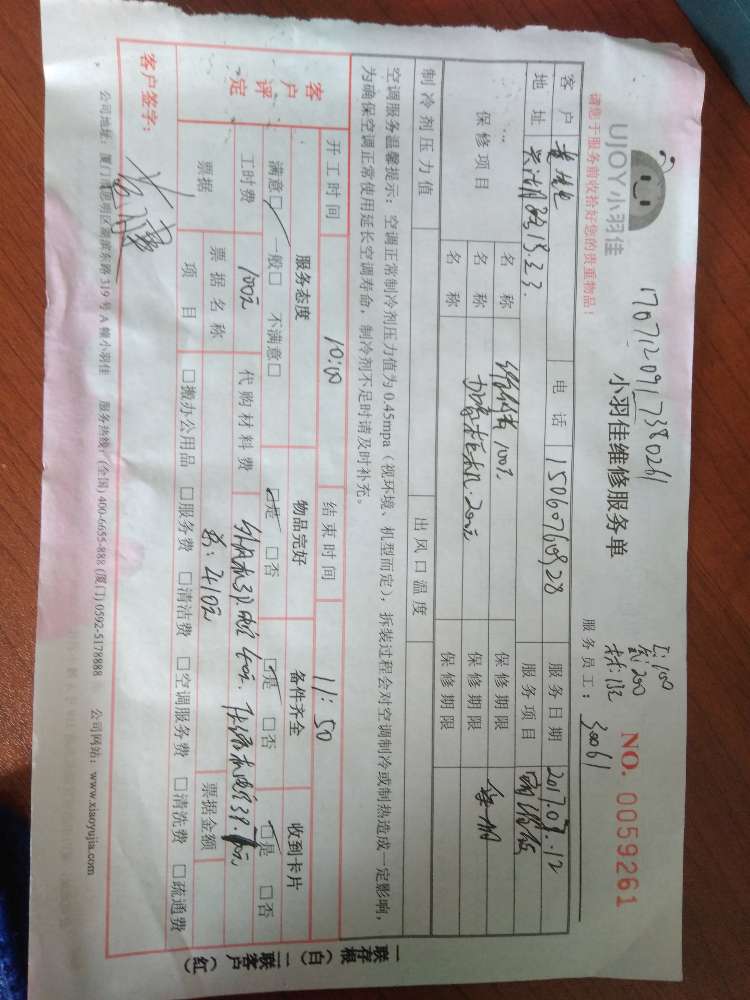 1707120917380261
UJOY小羽佳
小羽佳维修服务单
NO. 0059261
请您于服务前收拾好您的贵重物品！
服务员工： 30061
工：100
材：132
客户
电话 15060760928
服务日期 2017.07.12
地址
服务项目
保修项目
名称
保修期限
名称
保修期限
名称
保修期限
制冷剂压力值
出风口温度
空调服务温馨提示：空调正常制冷剂压力值为 0.45mpa（视环境、机型而定），拆装过程会对空调制冷或制热造成一定影响，
为确保空调正常使用延长空调寿命，制冷剂不足时请及时补充。
开工时间 10:00
结束时间 11:50
客户评定
服务态度
物品完好
备件齐全
收到卡片
满意□ 一般□ 不满意□
□是 □否
□是 □否
□是 □否
工时费 100元
代购材料费
票据
票据名称
票据金额
项目
□搬办公用品 □服务费 □清洁费 □空调服务费 □清洗费 □疏通费
客户签字：
公司地址：厦门市思明区湖滨东路 319 号 A 幢小羽佳 服务热线：(全国) 400-6655-888 (厦门) 0592-5178888 公司网站：www.xiaoyujia.com
一联存根（白）二联客户（红）